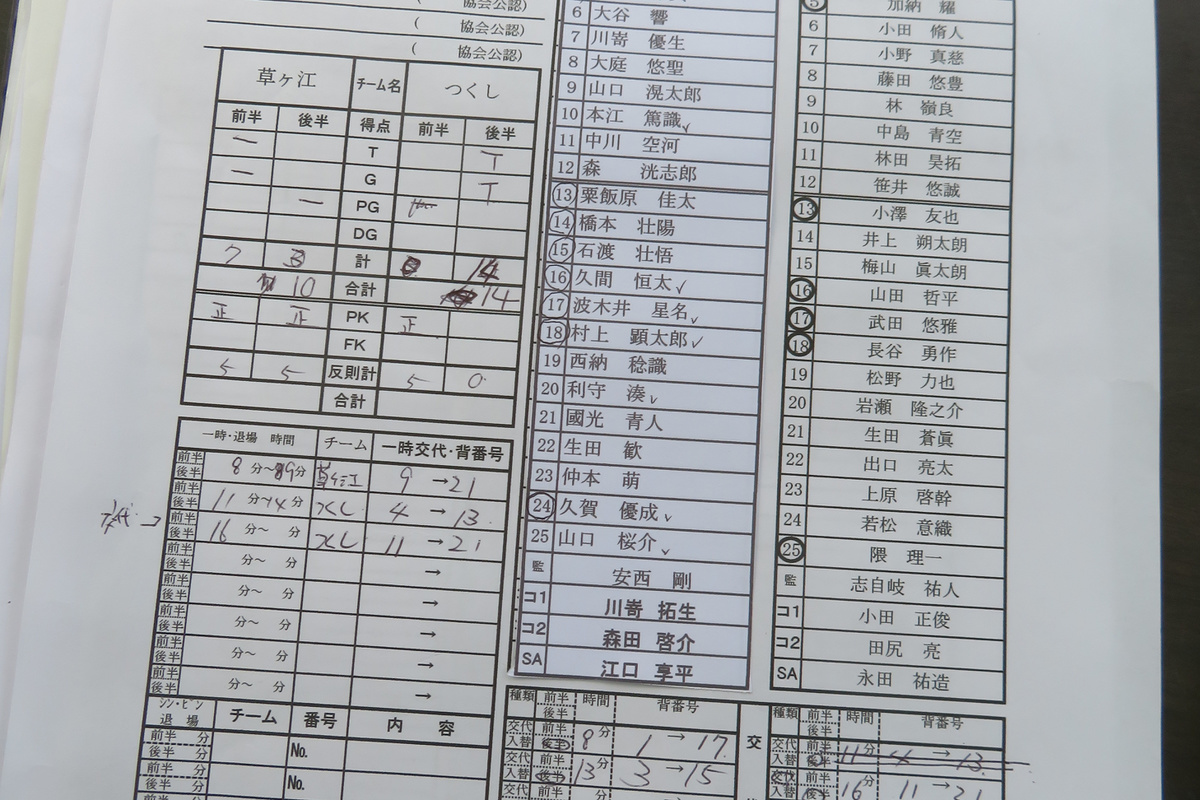 ( 協会公認)
( 協会公認)
( 協会公認)
草ヶ江 チーム名 つくし
前半 後半 得点 前半 後半
一 T T
一 G T
一 PG
DG
7 計 14
10 合計 14
正 正 PK 正
FK
5 5 反則計 5 0
合計
一時・退場 時間 チーム 一時交代・背番号
前半 後半 8分〜 9分 草ヶ江 9 → 21
前半 後半 11分〜14分 4 → 13
前半 後半 16分〜 分 11 → 21
前半 後半 分〜 分 →
前半 後半 分〜 分 →
前半 後半 分〜 分 →
前半 後半 分〜 分 →
前半 後半 分〜 分 →
シン・ビン 退場 チーム 番号 内 容
前半 分 後半 分 No.
前半 分 後半 分 No.
前半
6 大谷 響
7 川嵜 優生
8 大庭 悠聖
9 山口 滉太郎
10 本江 篤識
11 中川 空河
12 森 洸志郎
13 粟飯原 佳太
14 橋本 壮陽
15 石渡 壮悟
16 久間 恒太
17 波木井 星名
18 村上 顕太郎
19 西納 稔識
20 利守 湊
21 國光 青人
22 生田 歓
23 仲本 萌
24 久賀 優成
25 山口 桜介
監 安西 剛
コ1 川嵜 拓生
コ2 森田 啓介
SA 江口 享平
種類 前半 後半 時間 背番号
交代 入替 前半 後半 8分 1 → 17
交代 入替 前半 後半 13分 3 → 15
交代 前半 分
交
5 加納 耀
6 小田 脩人
7 小野 真慈
8 藤田 悠豊
9 林 嶺良
10 中島 青空
11 林田 昊拓
12 笹井 悠誠
13 小澤 友也
14 井上 朔太朗
15 梅山 眞太朗
16 山田 哲平
17 武田 悠雅
18 長谷 勇作
19 松野 力也
20 岩瀬 隆之介
21 生田 蒼眞
22 出口 亮太
23 上原 啓幹
24 若松 意織
25 隈 理一
監 志自岐 祐人
コ1 小田 正俊
コ2 田尻 亮
SA 永田 祐造
種類 前半 後半 時間 背番号
交代 入替 前半 後半 11分 4 → 13
交代 入替 前半 後半 16分 11 → 21